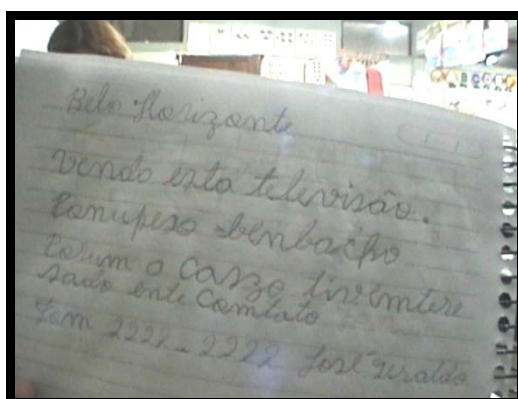 Belo Horizonte
Vendo esta televisão.
Conupeso benbacho
Corum o caszo tiveintere
sado ente Comtato
Fom 2222-2222 José Geraldo